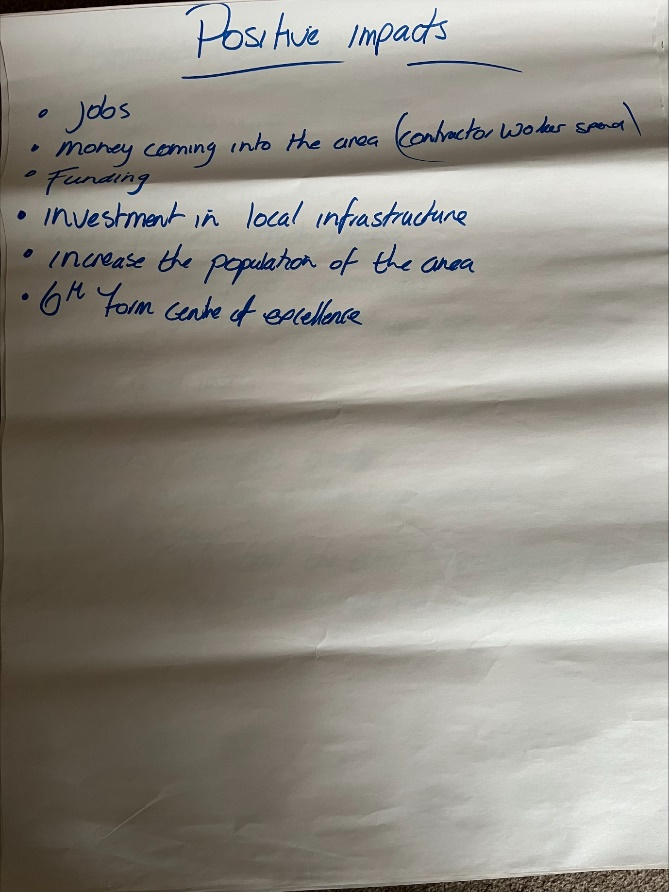 Positive impacts
• Jobs
• money coming into the area (contractor worker spend)
• Funding
• investment in local infrastructure
• increase the population of the area
• 6th form centre of excellence